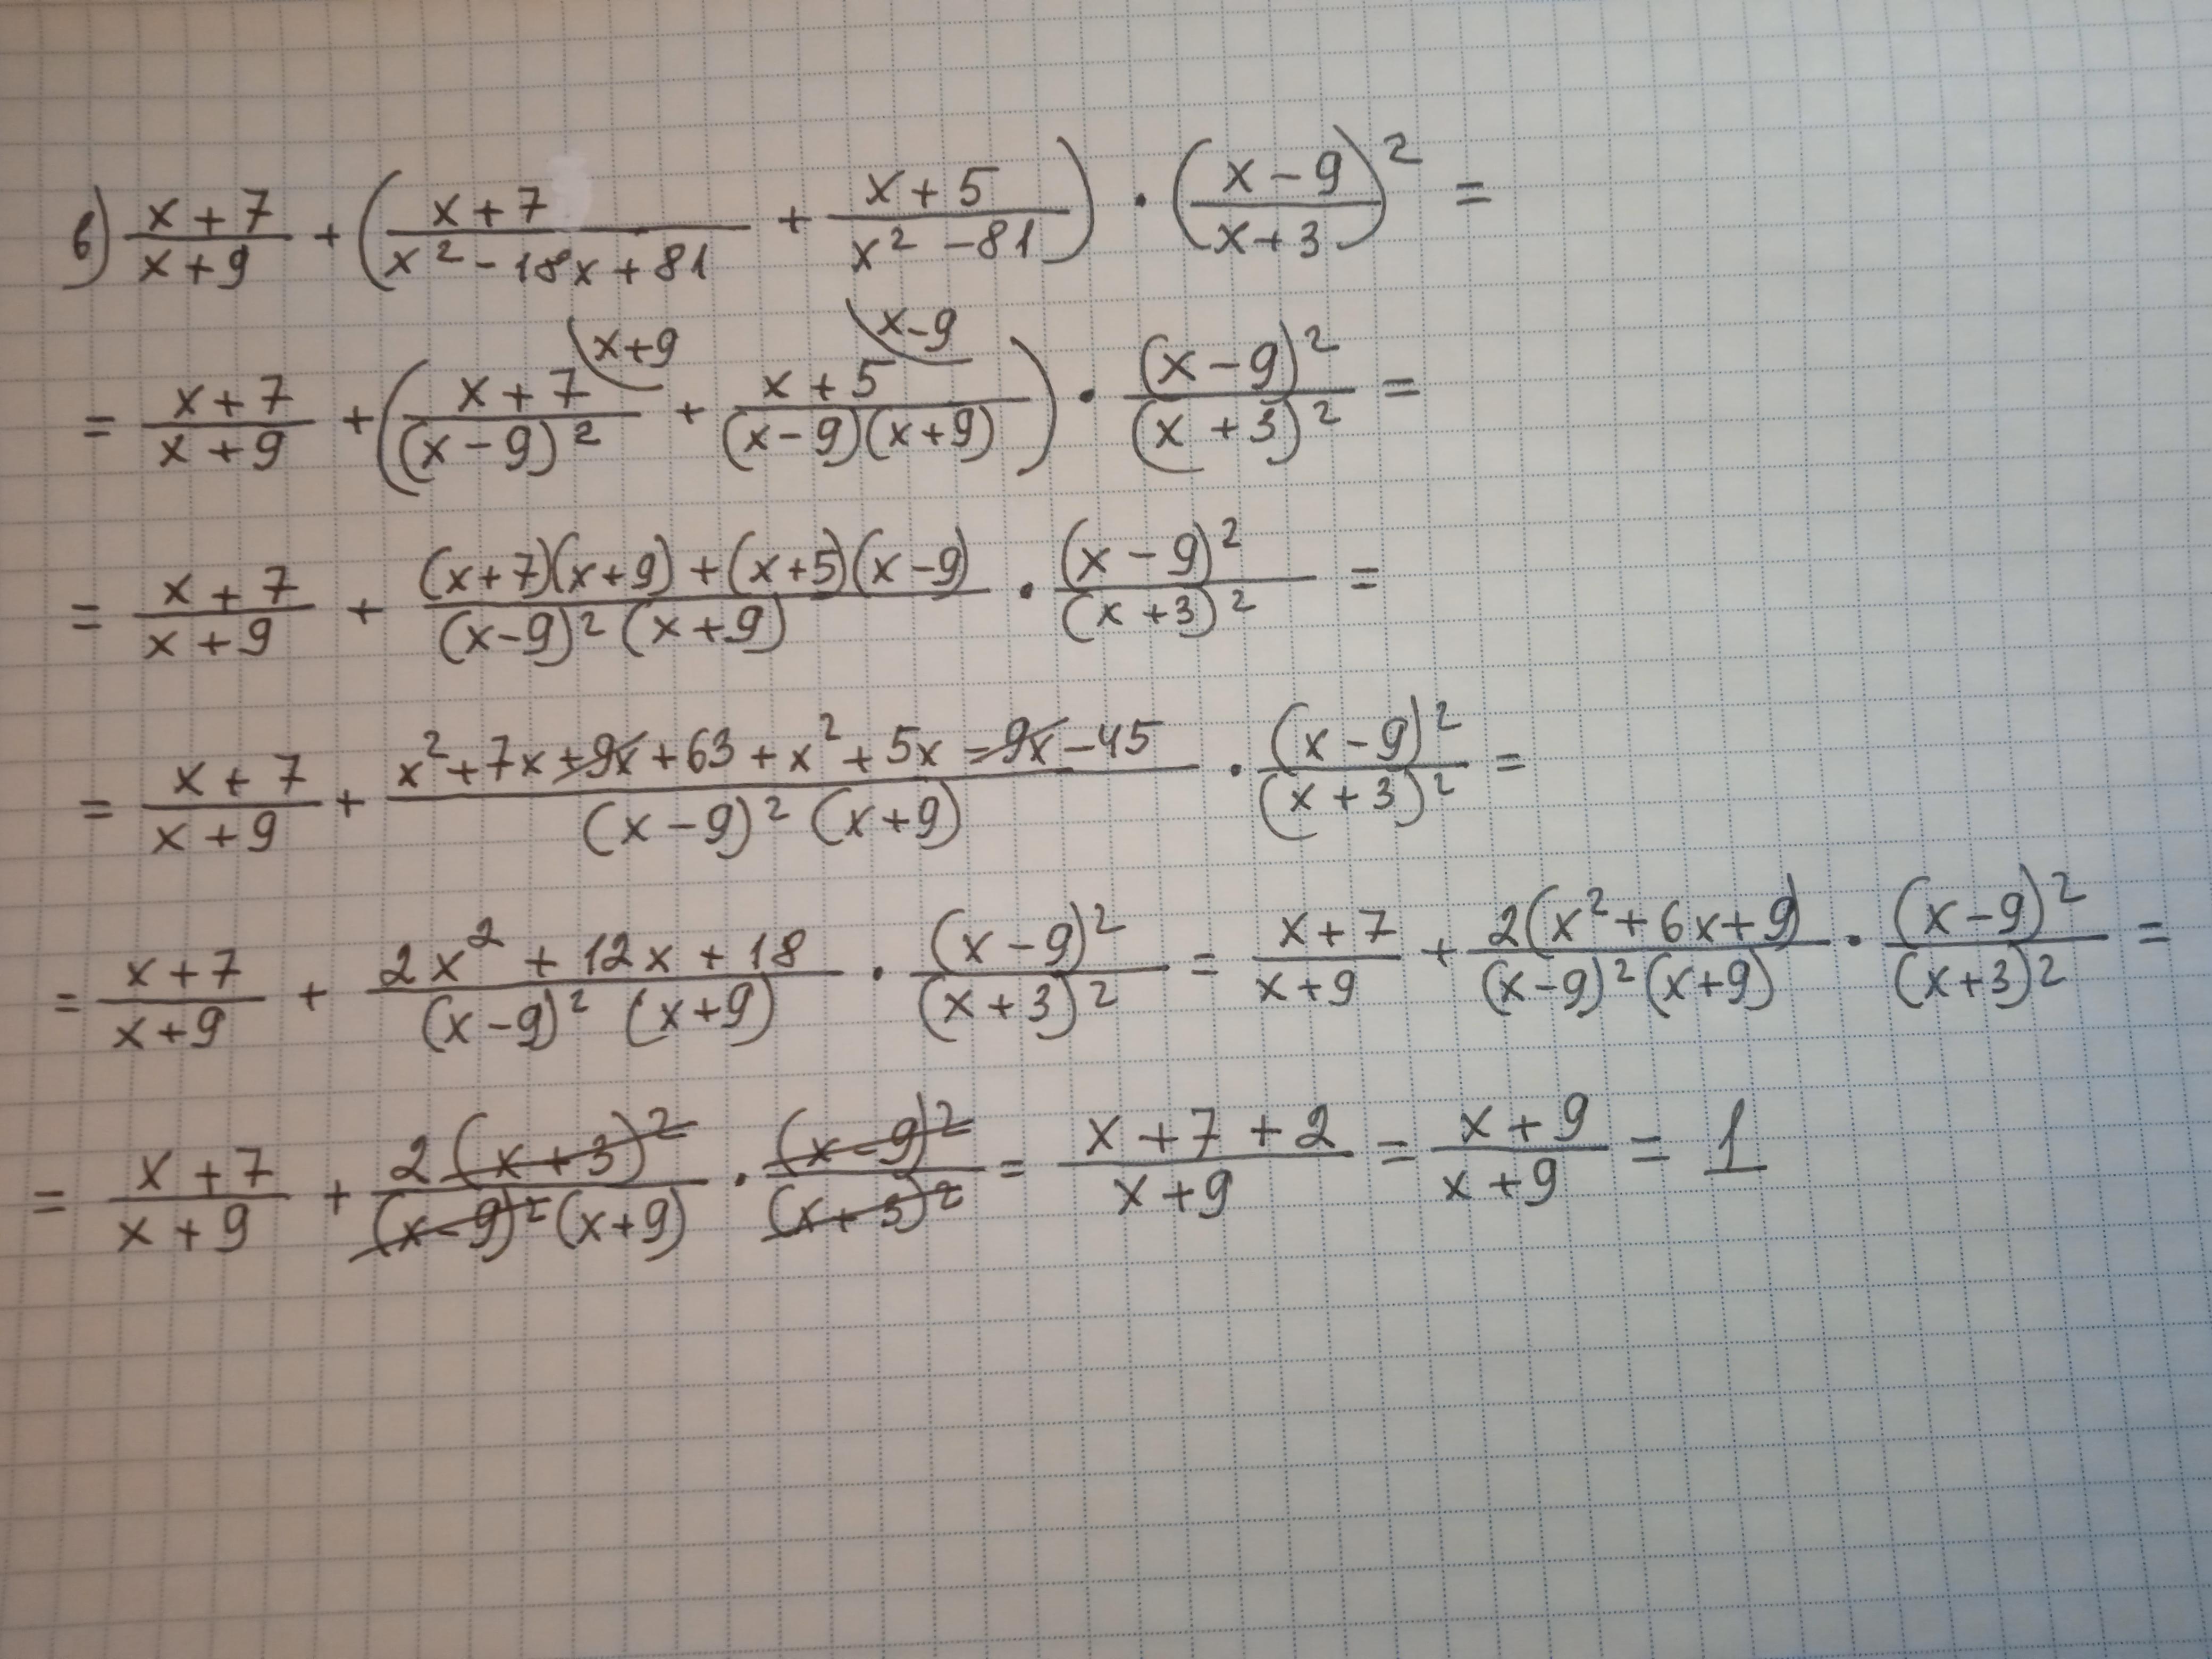 в) (x+7)/(x+9) + ((x+7)/(x²-18x+81) + (x+5)/(x²-81)) · ((x-9)/(x+3))² =
= (x+7)/(x+9) + ((x+7)/(x-9)² (x+9 + (x+5)/((x-9)(x+9)) (x-9) · (x-9)²/(x+3)² =
= (x+7)/(x+9) + ((x+7)(x+9)+(x+5)(x-9))/((x-9)²(x+9)) · (x-9)²/(x+3)² =
= (x+7)/(x+9) + (x²+7x+9x+63+x²+5x-9x-45)/((x-9)²(x+9)) · (x-9)²/(x+3)² =
= (x+7)/(x+9) + (2x²+12x+18)/((x-9)²(x+9)) · (x-9)²/(x+3)² = (x+7)/(x+9) + 2(x²+6x+9)/((x-9)²(x+9)) · (x-9)²/(x+3)² =
= (x+7)/(x+9) + 2(x+3)²/((x-9)²(x+9)) · (x-9)²/(x+3)² = (x+7+2)/(x+9) = (x+9)/(x+9) = 1